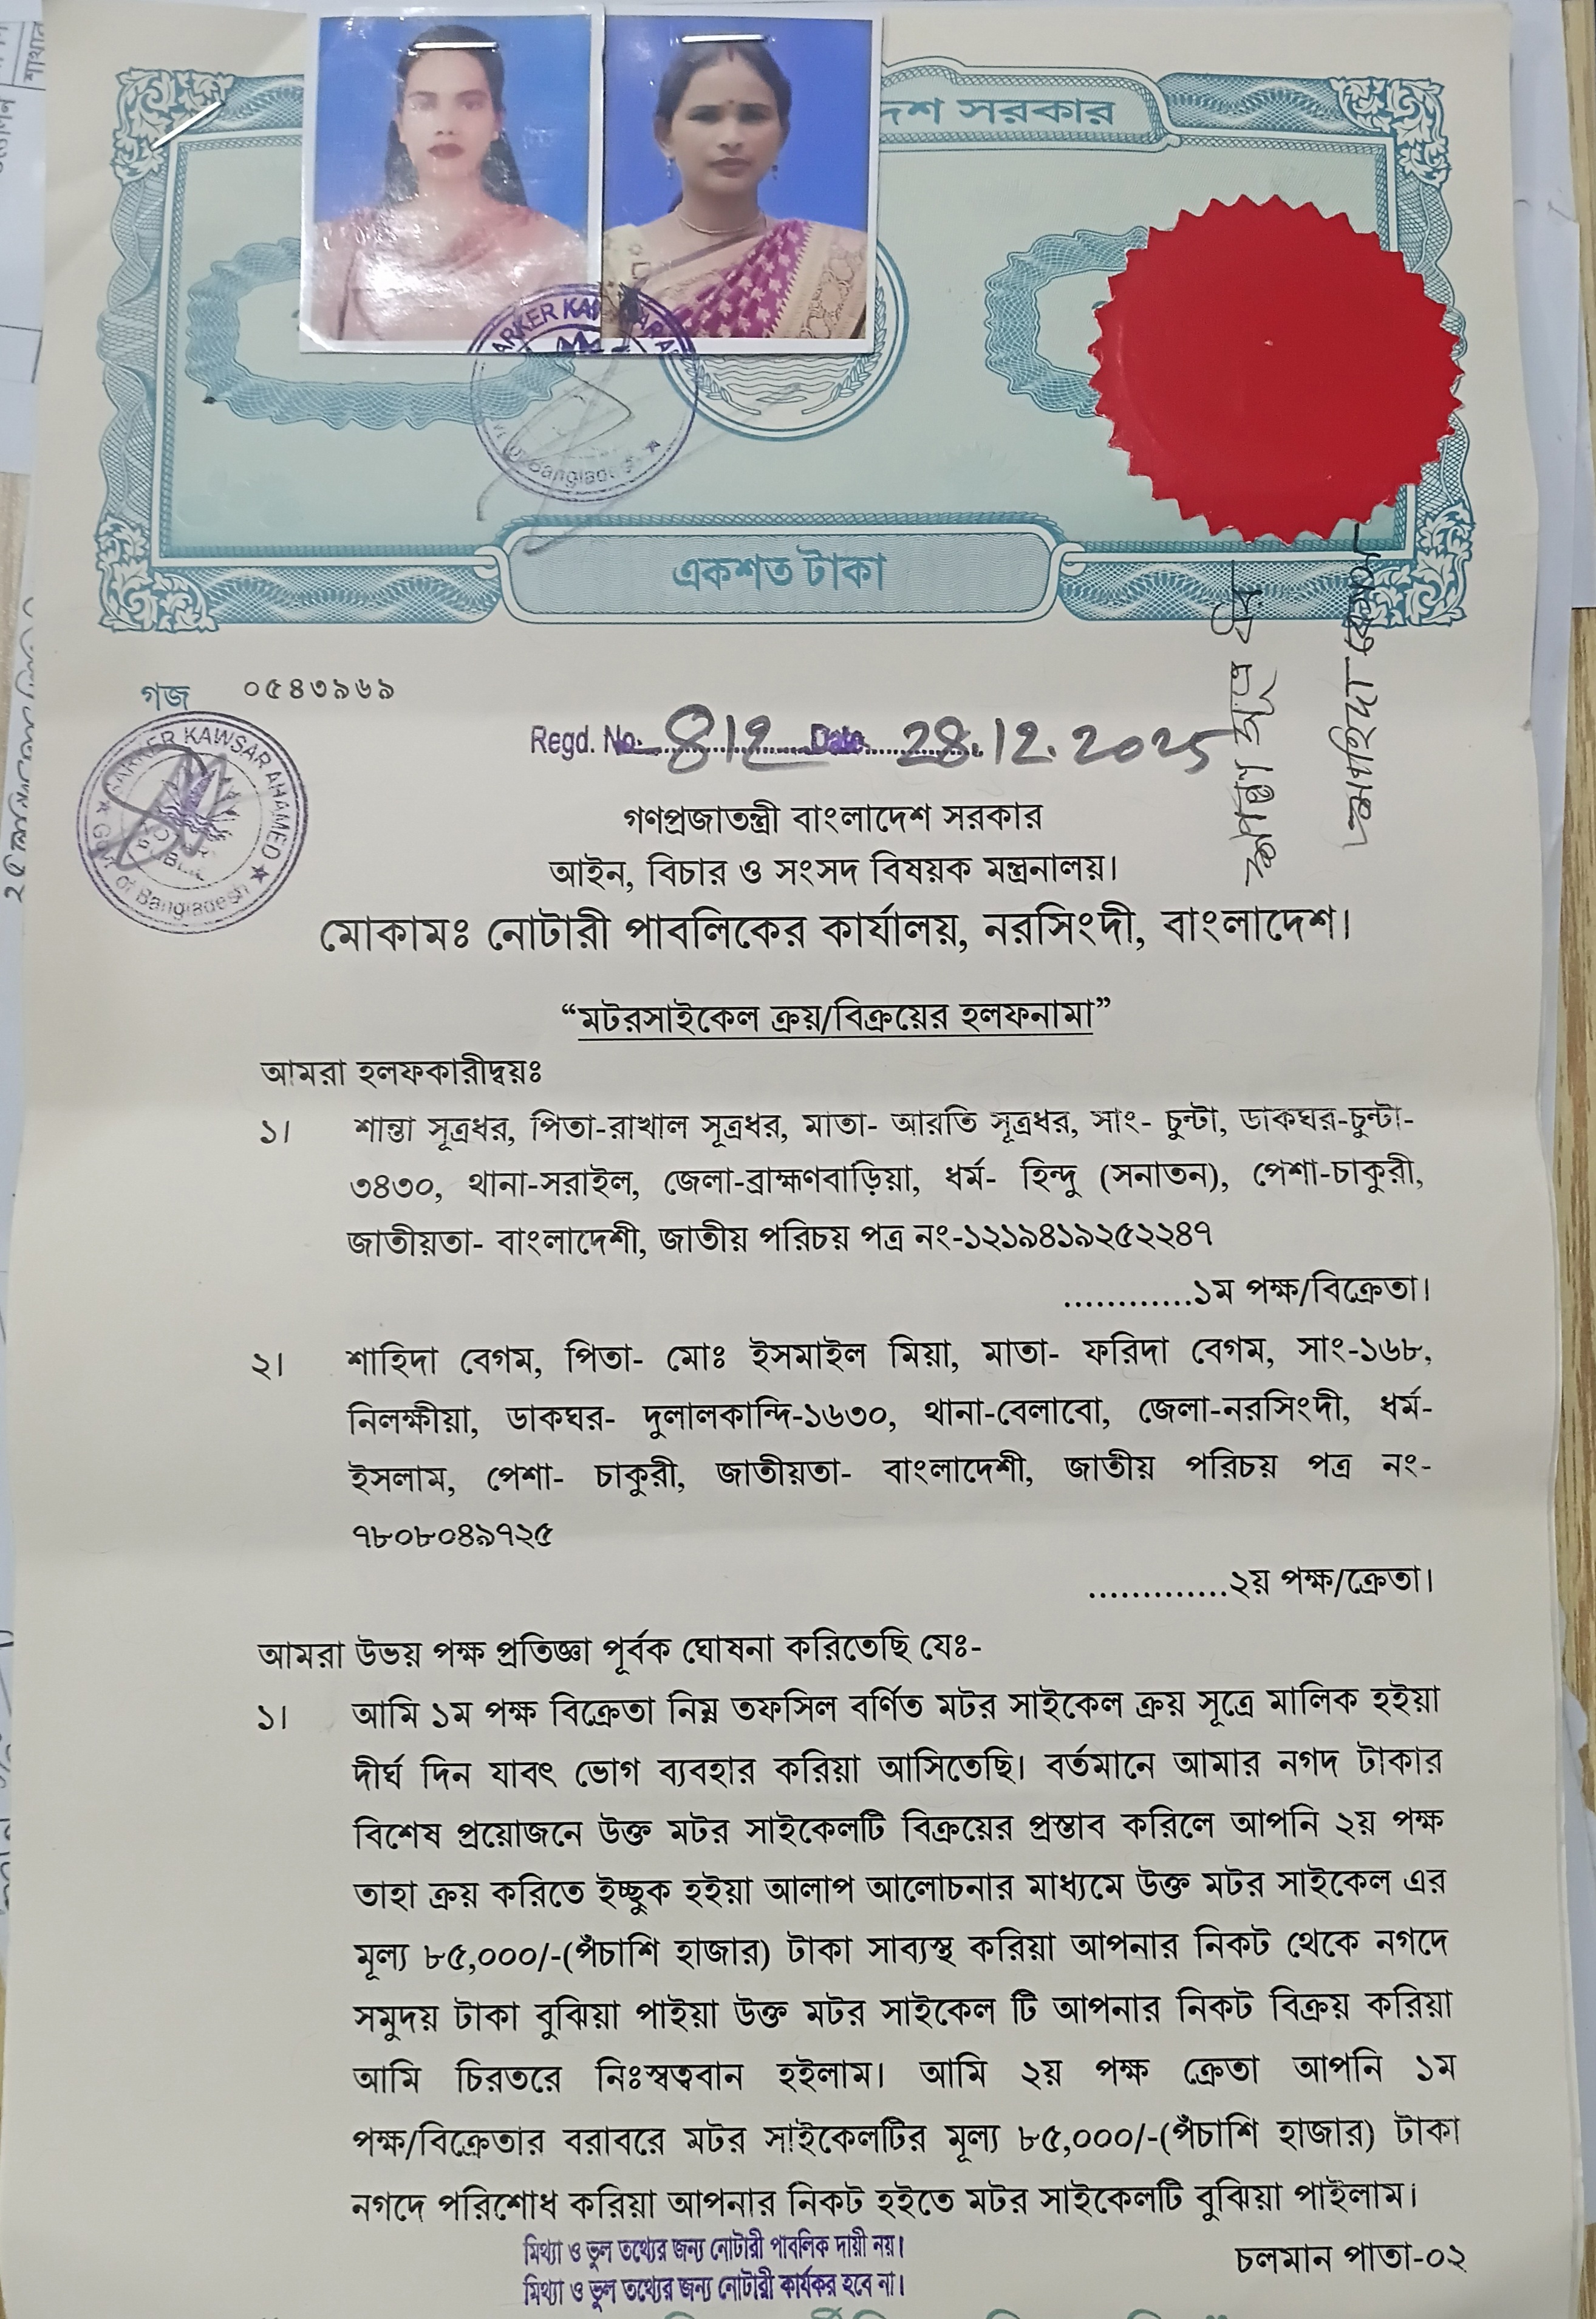 দেশ সরকার
একশত টাকা
গজ ০৫৪৩৯৬৯
Regd. No. 812 Date 28.12.2025
SARKER KAWSAR AHAMED
Govt. of Bangladesh
শান্তা সূত্রধর
শাহিদা বেগম
গণপ্রজাতন্ত্রী বাংলাদেশ সরকার
আইন, বিচার ও সংসদ বিষয়ক মন্ত্রনালয়।
মোকামঃ নোটারী পাবলিকের কার্যালয়, নরসিংদী, বাংলাদেশ।
“মটরসাইকেল ক্রয়/বিক্রয়ের হলফনামা”
আমরা হলফকারীদ্বয়ঃ
১। শান্তা সূত্রধর, পিতা-রাখাল সূত্রধর, মাতা- আরতি সূত্রধর, সাং- চুন্টা, ডাকঘর-চুন্টা-
৩৪৩০, থানা-সরাইল, জেলা-ব্রাহ্মণবাড়িয়া, ধর্ম- হিন্দু (সনাতন), পেশা-চাকুরী,
জাতীয়তা- বাংলাদেশী, জাতীয় পরিচয় পত্র নং-১২১৯৪১৯২৫২২৪৭
............১ম পক্ষ/বিক্রেতা।
২। শাহিদা বেগম, পিতা- মোঃ ইসমাইল মিয়া, মাতা- ফরিদা বেগম, সাং-১৬৮,
নিলক্ষীয়া, ডাকঘর- দুলালকান্দি-১৬৩০, থানা-বেলাবো, জেলা-নরসিংদী, ধর্ম-
ইসলাম, পেশা- চাকুরী, জাতীয়তা- বাংলাদেশী, জাতীয় পরিচয় পত্র নং-
৭৮০৮০৪৯৭২৫
.............২য় পক্ষ/ক্রেতা।
আমরা উভয় পক্ষ প্রতিজ্ঞা পূর্বক ঘোষনা করিতেছি যেঃ-
১। আমি ১ম পক্ষ বিক্রেতা নিম্ন তফসিল বর্ণিত মটর সাইকেল ক্রয় সূত্রে মালিক হইয়া
দীর্ঘ দিন যাবৎ ভোগ ব্যবহার করিয়া আসিতেছি। বর্তমানে আমার নগদ টাকার
বিশেষ প্রয়োজনে উক্ত মটর সাইকেলটি বিক্রয়ের প্রস্তাব করিলে আপনি ২য় পক্ষ
তাহা ক্রয় করিতে ইচ্ছুক হইয়া আলাপ আলোচনার মাধ্যমে উক্ত মটর সাইকেল এর
মূল্য ৮৫,০০০/-(পঁচাশি হাজার) টাকা সাব্যস্থ করিয়া আপনার নিকট থেকে নগদে
সমুদয় টাকা বুঝিয়া পাইয়া উক্ত মটর সাইকেল টি আপনার নিকট বিক্রয় করিয়া
আমি চিরতরে নিঃস্বত্ববান হইলাম। আমি ২য় পক্ষ ক্রেতা আপনি ১ম
পক্ষ/বিক্রেতার বরাবরে মটর সাইকেলটির মূল্য ৮৫,০০০/-(পঁচাশি হাজার) টাকা
নগদে পরিশোধ করিয়া আপনার নিকট হইতে মটর সাইকেলটি বুঝিয়া পাইলাম।
মিথ্যা ও ভুল তথ্যের জন্য নোটারী পাবলিক দায়ী নয়।
মিথ্যা ও ভুল তথ্যের জন্য নোটারী কার্যকর হবে না।
চলমান পাতা-০২